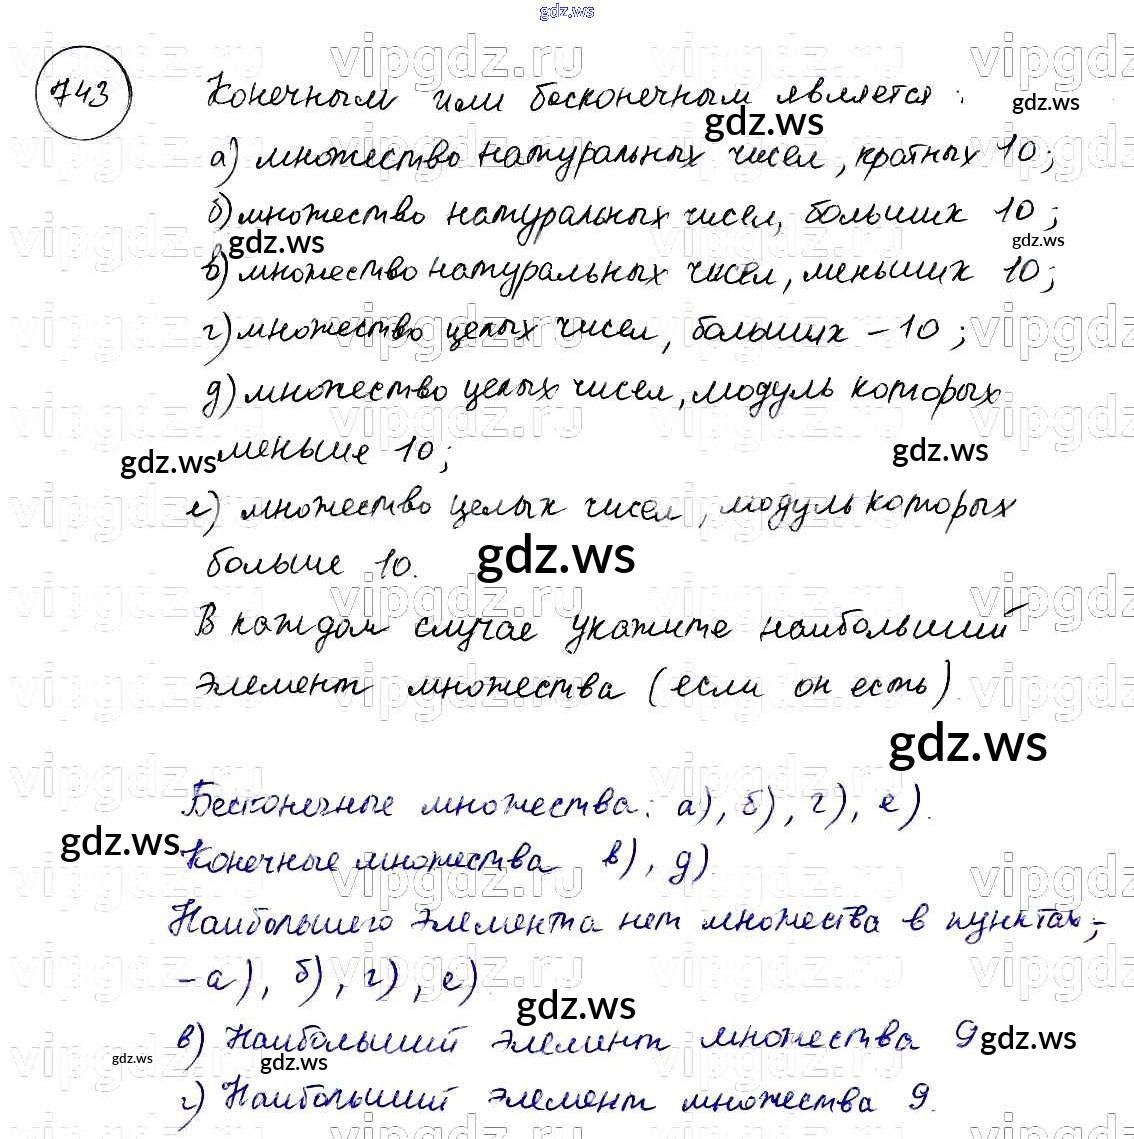 gdz.ws
743 Конечным или бесконечным является:
gdz.ws
gdz.ws
а) множество натуральных чисел, кратных 10;
б) множество натуральных чисел, больших 10;
gdz.ws
gdz.ws
в) множество натуральных чисел, меньших 10;
г) множество целых чисел, больших -10;
д) множество целых чисел, модуль которых
меньше 10;
gdz.ws
gdz.ws
е) множество целых чисел, модуль которых
больше 10.
gdz.ws
В каждом случае укажите наибольший
элемент множества (если он есть).
gdz.ws
Бесконечные множества: а), б), г), е).
gdz.ws
Конечные множества в), д)
Наибольшего элемента нет множества в пунктах;
-а), б), г), е).
gdz.ws
в) Наибольший элемент множества 9
gdz.ws
gdz.ws
gdz.ws
г) Наибольший элемент множества 9.
vipgdz.ru